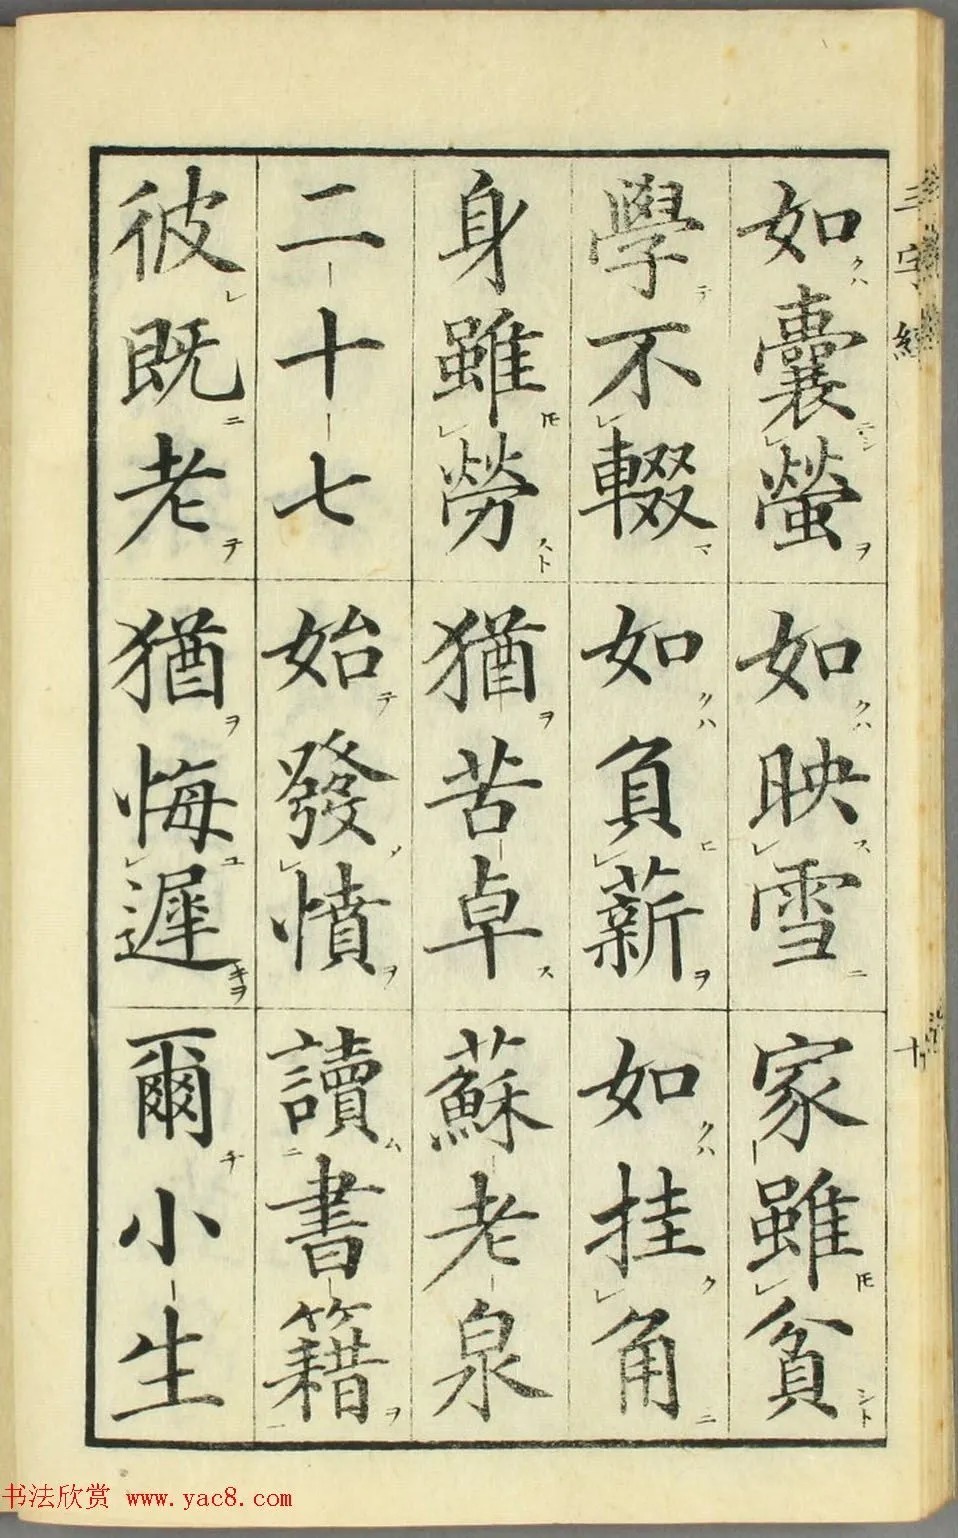 三字經
十
如囊螢如映雪家雖貧
學不輟如負薪如挂角
身雖勞猶苦卓蘇老泉
二十七始發憤讀書籍
彼既老猶悔遲爾小生
书法欣赏 www.yac8.com